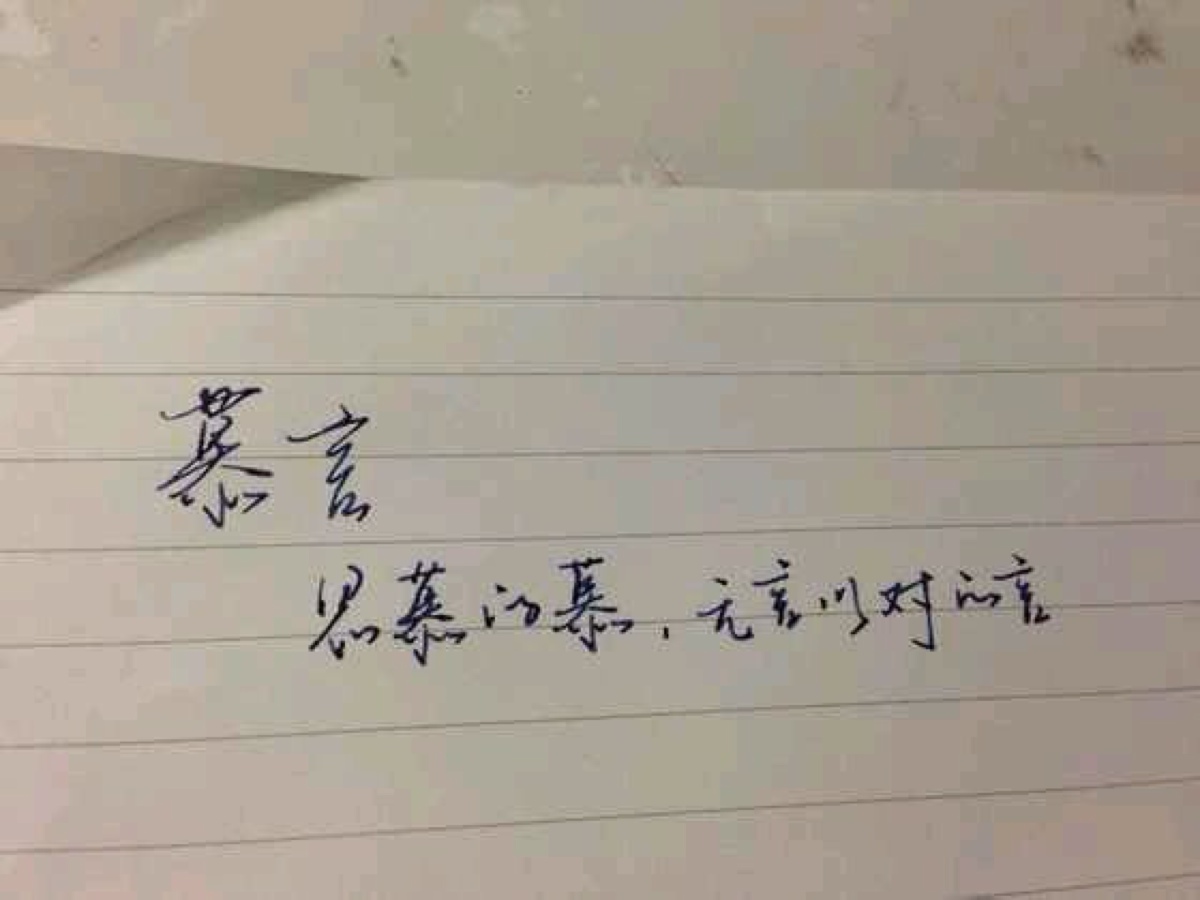 慕言
思慕的慕，无言以对的言